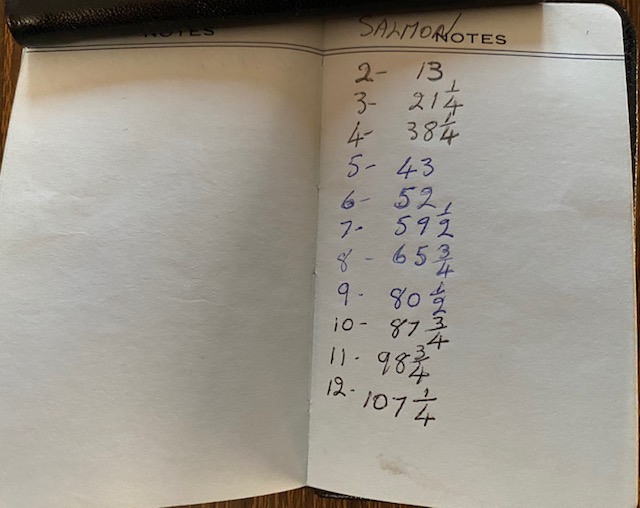 NOTES
SALMON NOTES
2- 13
3- 21 1/4
4- 38 1/4
5- 43
6- 52
7- 59 1/2
8- 65 3/4
9- 80 1/2
10- 87 3/4
11- 98 3/4
12- 107 1/4